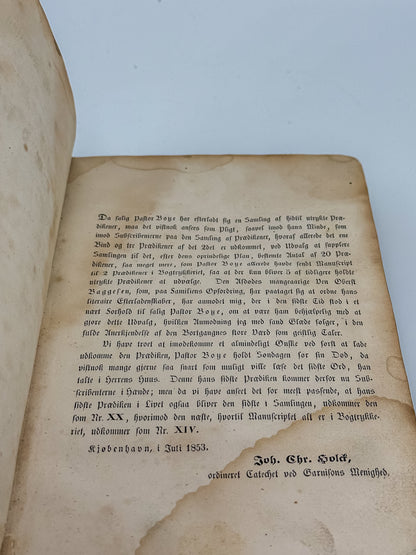 Da salig Pastor Boye har efterladt sig en Samling af hidtil utrykte Præ-
dikener, maa det vistnok ansees som Pligt, saavel imod hans Minde, som
imod Subscribenterne paa den Samling af Prædikener, hvoraf allerede det ene
Bind og tre Prædikener af det Abet er udkommet, ved Udvalg at supplere
Samlingen til det, efter dens oprindelige Plan, bestemte Antal af 20 Præ-
dikener, saa meget mere, som Pastor Boye allerede havde sendt Manuscript
til 2 Prædikener i Bogtrykkeriet, saa at der kun bliver 5 af tidligere holdte
utrykte Prædikener at udvælge. Den Afdødes mangeaarige Ven Oberst
Baggesen, som, paa Familiens Opfordring, har paataget sig at ordne hans
literaire Efterladenskaber, har anmodet mig, der i den sidste Tid stod i et
nært Forhold til salig Pastor Boye, om, at være ham behjælpelig med at
gjøre dette Udvalg, hvilken Anmodning jeg med sand Glæde følger, i den
fulde Anerkjendelse af den Bortgangnes store Værd som geistlig Taler.
Vi have troet at imødekomme et almindeligt Ønske ved først at lade
udkomme den Prædiken, Pastor Boye holdt Søndagen før sin Død, da
vistnok mange gjerne saa snart som muligt ville læse det sidste Ord, han
talte i Herrens Huus. Denne hans sidste Prædiken kommer derfor nu Sub-
scribenterne i Hænde; men da vi have anseet det for meest passende, at hans
sidste Prædiken i Livet ogsaa bliver den sidste i Samlingen, udkommer den
som Nr. XX, hvorimod den næste, hvortil Manuscriptet alt er i Bogtrykke-
riet, udkommer som Nr. XIV.
Kjøbenhavn, i Juli 1853.
Joh. Chr. Holck,
ordineret Catechet ved Garnisons Menighed.